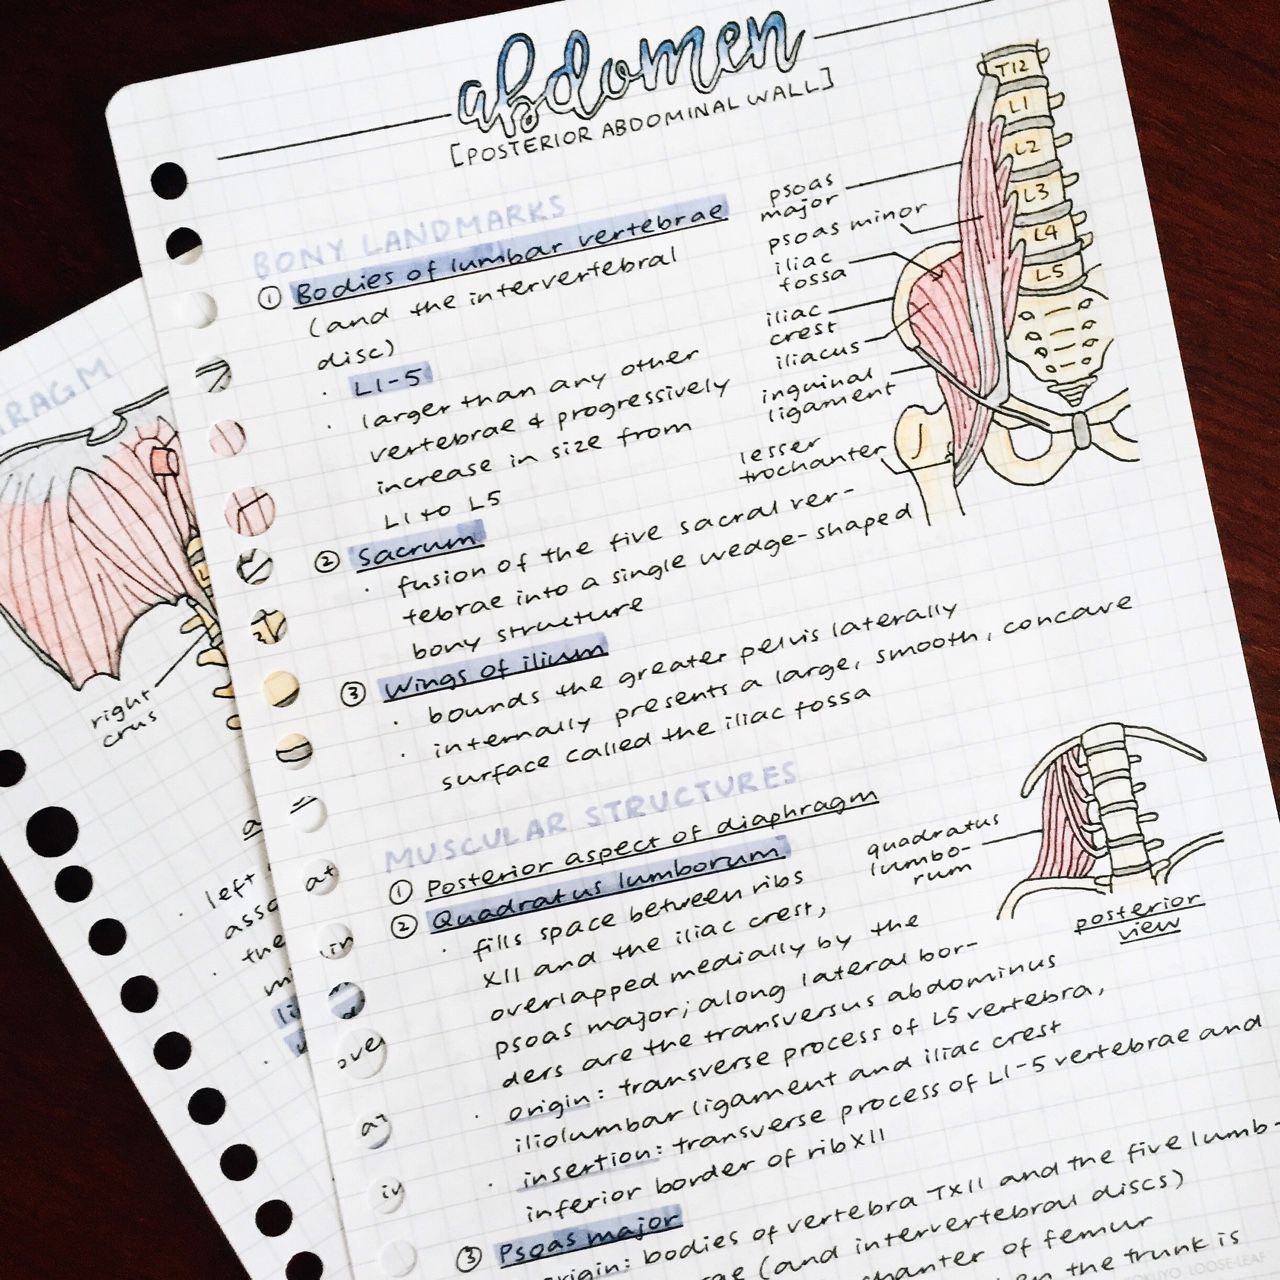 abdomen
[POSTERIOR ABDOMINAL WALL]
BONY LANDMARKS
① Bodies of lumbar vertebrae
(and the intervertebral
disc)
· L1-5
· larger than any other
vertebrae & progressively
increase in size from
L1 to L5
② Sacrum
· fusion of the five sacral ver-
tebrae into a single wedge-shaped
bony structure
③ Wings of ilium
· bounds the greater pelvis laterally
· internally presents a large, smooth, concave
surface called the iliac fossa
T12
L1
L2
L3
L4
L5
psoas
major
psoas minor
iliac
fossa
iliac
crest
iliacus
inguinal
ligament
lesser
trochanter
MUSCULAR STRUCTURES
① Posterior aspect of diaphragm
② Quadratus lumborum
· fills space between ribs
XII and the iliac crest,
overlapped medially by the
psoas major; along lateral bor-
ders are the transversus abdominus
· origin: transverse process of L5 vertebra,
iliolumbar ligament and iliac crest
· insertion: transverse process of L1-5 vertebrae and
inferior border of rib XII
③ Psoas major
origin: bodies of vertebra TXII and the five lumb-
(and intervertebral discs)
of femur
the trunk is
quadratus
lumbo-
rum
posterior
view
RAGM
right
crus
left
asso
the
LOOSE-LEAF